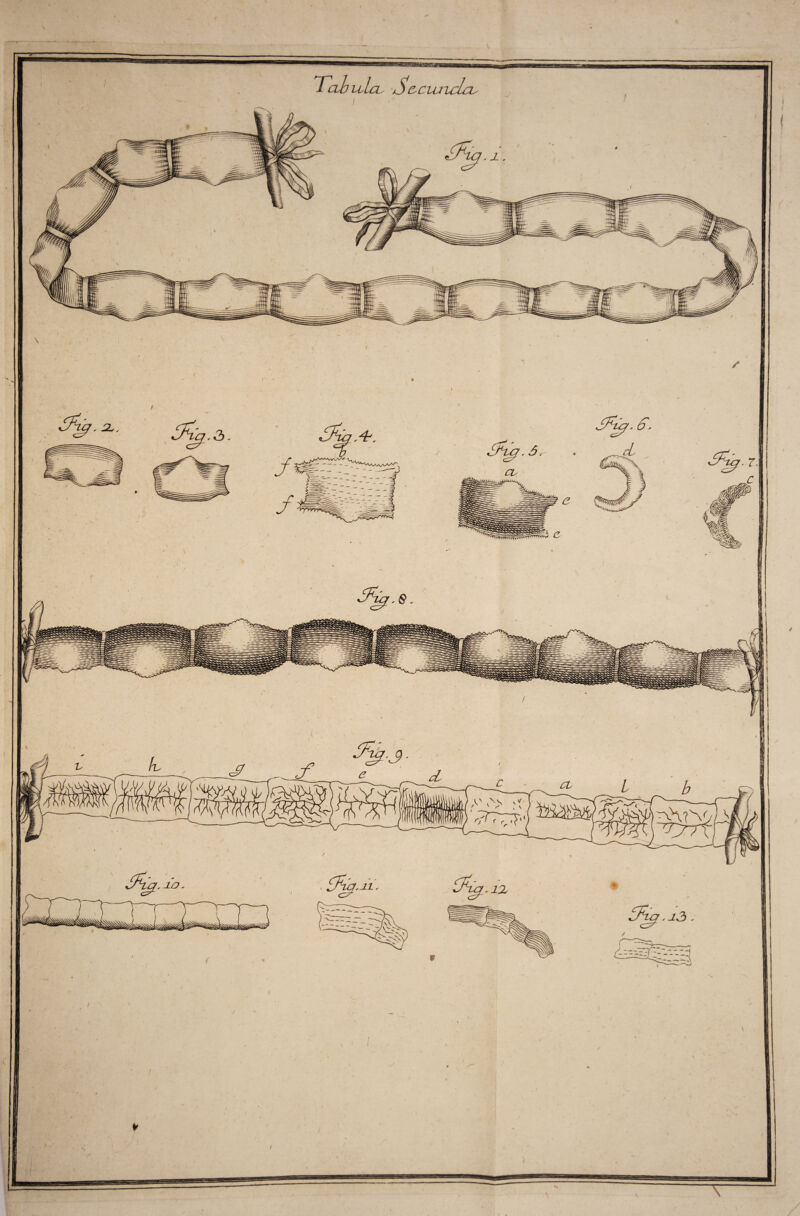 Tabula Secunda
Fig. 1.
Fig. 2.
Fig. 3.
Fig. 4.
Fig. 5.
Fig. 6.
Fig. 7.
b
f
f
a
e
e
d
c
Fig. 8.
Fig. 9.
i h g f e d c a l b
Fig. 10.
Fig. 11.
Fig. 12
Fig. 13.